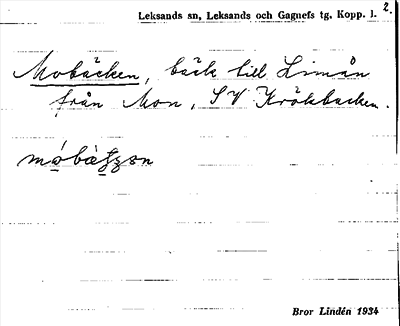 Leksands sn, Leksands och Gagnefs tg, Kopp. l. 2.
Mobäcken, bäck till Limån
från Mon, SV Krökbacken.
Bror Lindén 1934